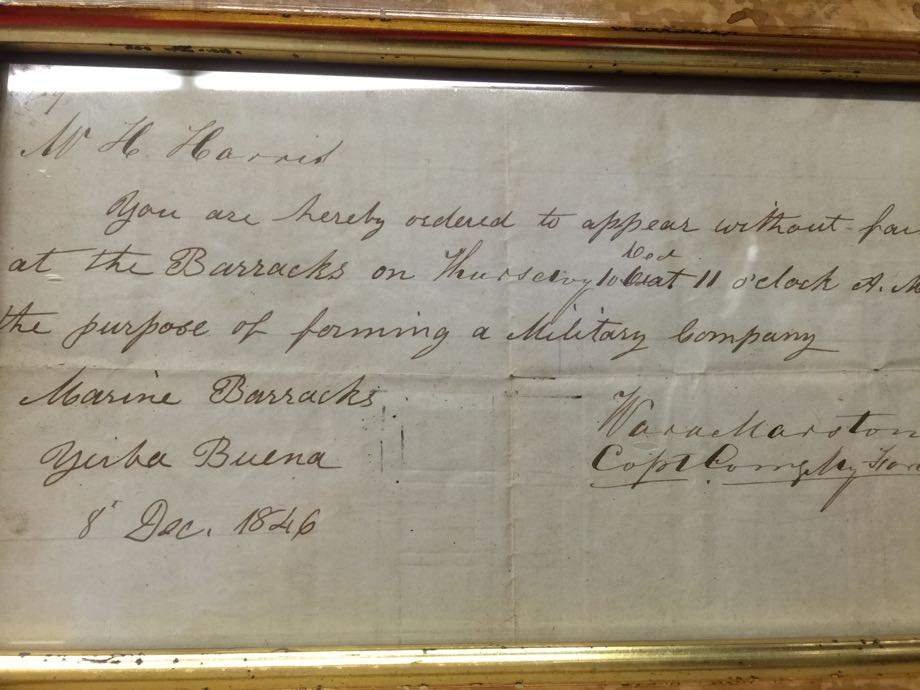 Mr H. Harris
You are hereby ordered to appear without fai
at the Barracks on Thursday 10 Dec at 11 o'clock A. M
the purpose of forming a Military Company
Marine Barracks
Yirba Buena
8 Dec. 1846
Ward Marston
Capt Comg